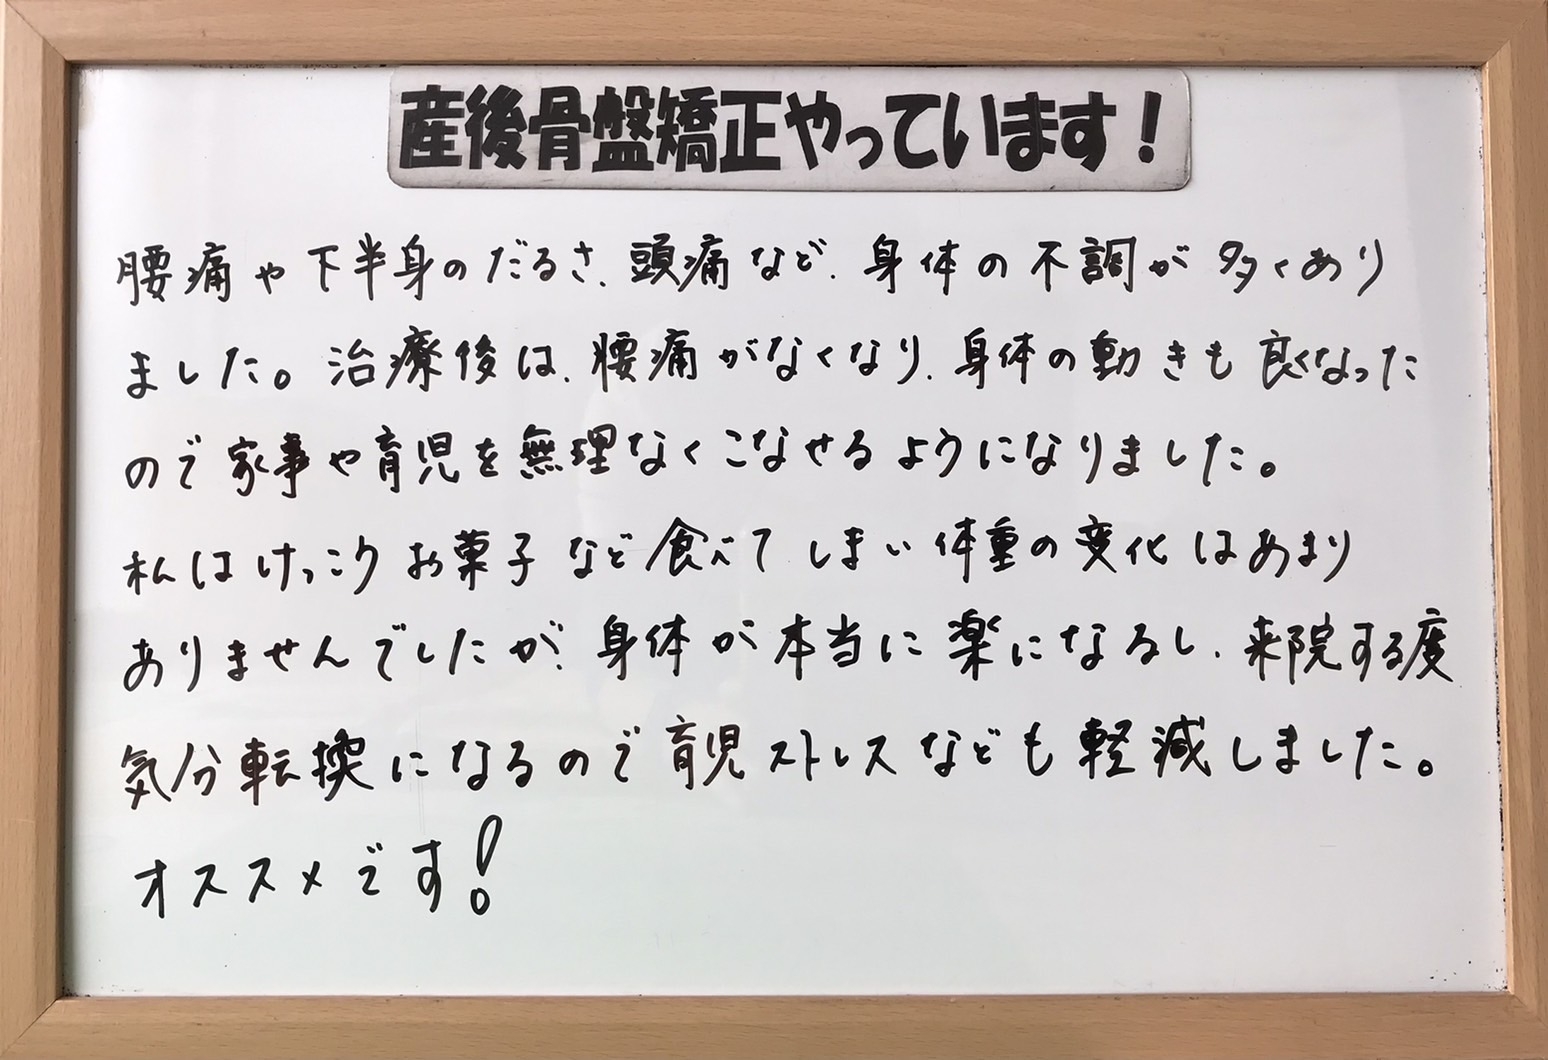 産後骨盤矯正やっています！
腰痛や下半身のだるさ、頭痛など、身体の不調が多くあり
ました。治療後は、腰痛がなくなり、身体の動きも良くなった
ので家事や育児を無理なくこなせるようになりました。
私はけっこうお菓子など食べてしまい体重の変化はあまり
ありませんでしたが、身体が本当に楽になるし、来院する度
気分転換になるので育児ストレスなども軽減しました。
オススメです！